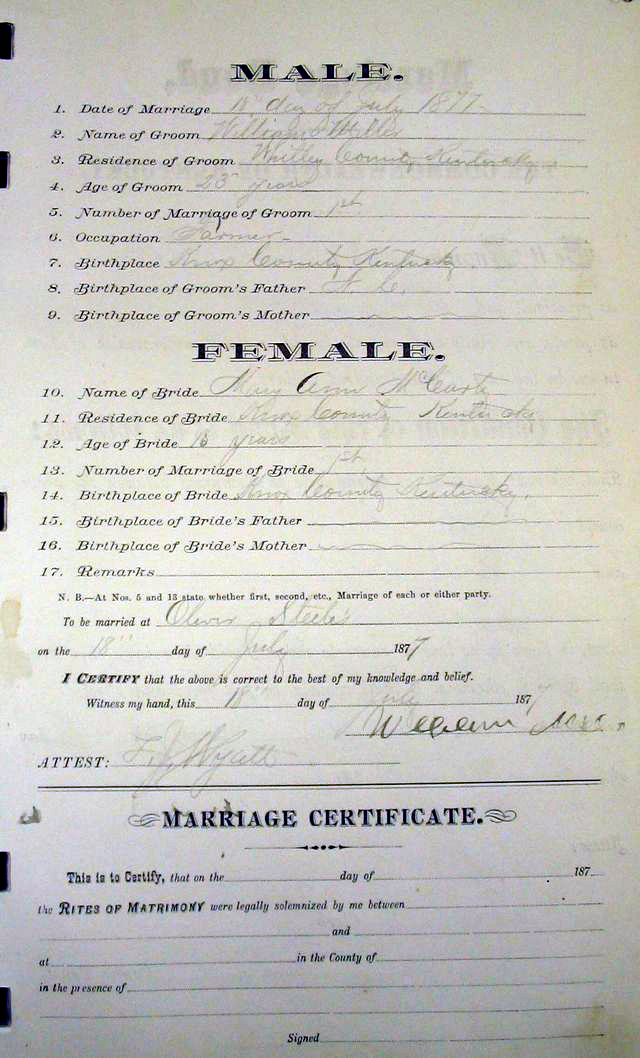 MALE.
1. Date of Marriage 18" day of July 1877
2. Name of Groom William Miller
3. Residence of Groom Whitley County Kentucky
4. Age of Groom 23 years
5. Number of Marriage of Groom 1st
6. Occupation Farmer
7. Birthplace Knox County Kentucky
8. Birthplace of Groom's Father N. C.
9. Birthplace of Groom's Mother
FEMALE.
10. Name of Bride Mary Ann
11. Residence of Bride Knox County Kentucky
12. Age of Bride years
13. Number of Marriage of Bride 1st
14. Birthplace of Bride Knox County Kentucky.
15. Birthplace of Bride's Father
16. Birthplace of Bride's Mother
17. Remarks
N. B.—At Nos. 5 and 13 state whether first, second, etc., Marriage of each or either party.
To be married at Oliver Steeles
on the 18" day of July 1877
I CERTIFY that the above is correct to the best of my knowledge and belief.
Witness my hand, this 18" day of July 1877
William
ATTEST: Wyatt
MARRIAGE CERTIFICATE.
This is to Certify, that on the day of 187
the RITES OF MATRIMONY were legally solemnized by me between
and
at in the County of
in the presence of
Signed